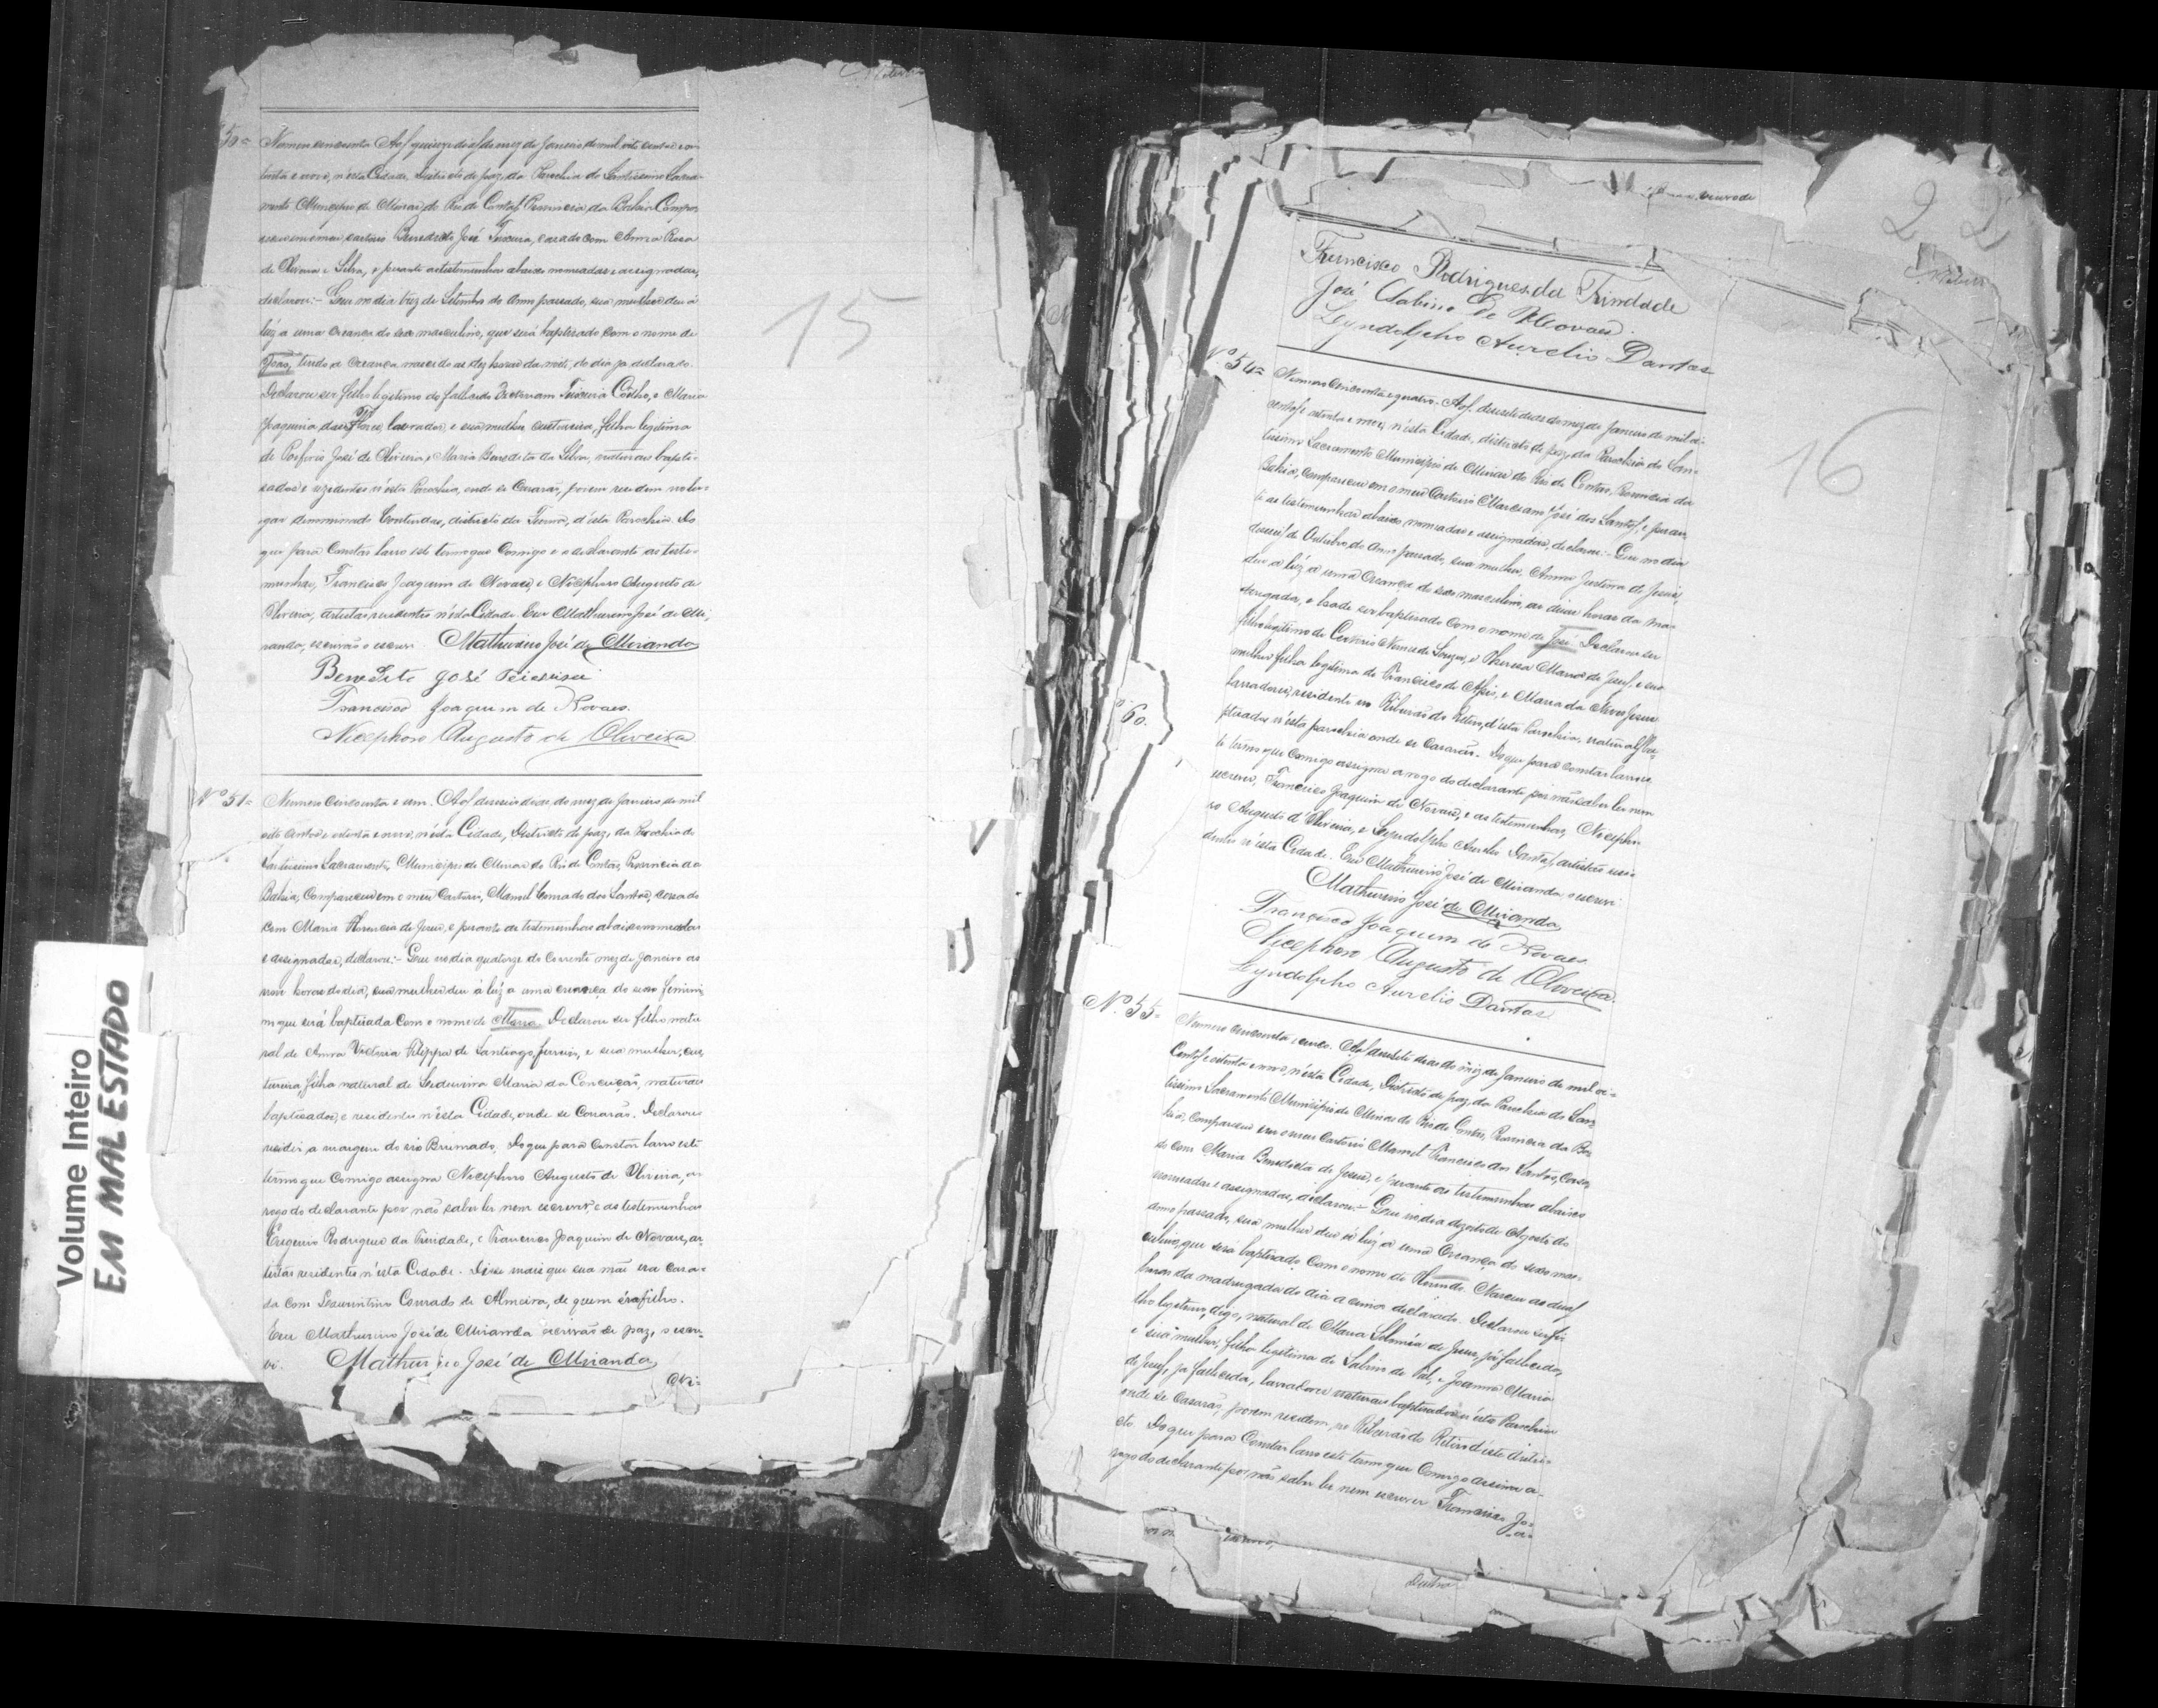 50=
Numero cincoenta Aos quinze dias do mez de Janeiro de mil oito centos e oi-
tenta e nove, n'esta Cidade, Districto de paz, da Parochia do Santissimo Sacra-
mento Municipio de Minas do Rio de Contas, Provincia da Bahia Compa-
receu em meu cartorio Benedicto José Teixeira, casado com Anna Rosa
de Oliveira e Silva, e perante as testemunhas abaixo nomeadas e assignadas,
declarou:- Que no dia trez de Setembro do anno passado, sua mulher deu á
luz a uma creança do sexo masculino, que será baptisado com o nome de
João, tendo a creança nascido as dez horas da noite, do dia ja declarado.
Declarou ser filho legitimo do fallecido Teixeira Coêlho, e Maria
Joaquina das Flores, lavrador, e sua mulher costureira, filha legitima
de Porfirio José de Oliveira, e Maria Benedicta da Silva, naturaes bapti-
sados e rezidentes n'esta Parochia, onde se casarão, porem residem no lu-
gar denominado Contendas, districto da Furna, d'esta Parochia. Do
que para constar lavro este termo que comigo e o declarante as teste-
munhas, Francisco Joaquim de Novaes, e Nicephoro Augusto de
Oliveira, artistas residentes n'esta Cidade. Eu Mathurino José de Mi-
randa, escrivão o escrevi. Mathurino José de Miranda
Benedito José Teixeira
Francisco Joaquim de Novaes.
Nicephoro Augusto de Oliveira
15
Nº 51=
Numero Cincoenta e um. Aos deseseis dias, do mez de Janeiro de mil
oito centos e oitenta e nove, n'esta Cidade, Districto de paz, da Parochia do
Santissimo Sacramento, Municipio de Minas do Rio de Contas, Provincia da
Bahia, Compareceu em o meu Cartorio, Manoel Conrado dos Santos, casado
com Maria Florencia de Jesus, e perante as testemunhas abaixo nomeadas
e assignadas, declarou:- Que no dia quatorze do corrente mez de Janeiro as
nove horas do dia, sua mulher deu á luz a uma creança do sexo femini-
no que será baptisada com o nome de Maria. Declarou ser filho natu-
ral de Anna Victoria Filippa de Santiago, ferreiro, e sua mulher, cos-
tureira, filha natural de Maria da Conceição, naturaes
baptisados, e residentes n'esta Cidade, onde se casarão. Declarou
residir a margem do rio Brumado. Do que para constar lavro este
termo que comigo assigna Nicephoro Augusto de Oliveira, a
rogo do declarante por não saber ler nem escrever, e as testemunhas
Eugenio Rodrigues da Trindade, e Francisco Joaquim de Novaes, ar-
tistas residentes n'esta Cidade. Disse mais que sua mãi era casa-
da com Conrado de Almeira, de quem éra filho.
Eu Mathurino José de Miranda escrivão de paz, o escre-
vi. Mathurino José de Miranda
Ni=
Volume Inteiro
EM MAL ESTADO
22
Francisco Rodrigues da Trindade
José Sabino de Novaes.
Leyndolpho Aurelio Dantas
16
Nº 54=
Numero Cincoenta e quatro. Aos desesete dias do mez de Janeiro de mil oi-
centos e oitenta e nove, n'esta Cidade, districto de paz, da Parochia do San-
tissimo Sacramento Municipio de Minas do Rio de Contas, Provincia da
Bahia, Compareceu em o meu Cartorio José dos Santos, e peran-
te as testemunhas abaixo nomeadas e assignadas, declarou:- Que no dia
deseseis de Outubro, do anno passado, sua mulher, Anna Justina de Jesus,
deu a luz a uma creança do sexo masculino, as duas horas da ma-
drugada, e hade ser baptisado com o nome de José. Declarou ser
filho legitimo de Nunes de Souza, e Thereza Maria de Jesus, e sua
mulher filha legitima de Francisco de Assis, e Maria das Neves Jesus
lavradores, residente no Ribeirão do Retiro, d'esta Parochia, naturaes, ba-
ptisados n'esta parochia onde se casarão. Do que para constar lavro es-
te termo que comigo assigna a rogo do declarante por não saber ler nem
escrever, Francisco Joaquim de Novaes, e as testemunhas, Nicepho-
ro Augusto d'Oliveira, e Leyndolpho Aurelio Dantas, artistas resi-
dentes n'esta Cidade. Eu Mathurino José de Miranda o escrevi
Mathurino José de Miranda
Francisco Joaquim de Novaes
Nicephoro Augusto de Oliveira.
Leyndolpho Aurelio Dantas
60.
Nº 55=
Numero cincoenta e cinco. Aos desesete dias do mez de Janeiro de mil oi-
Centos e oitenta e nove, n'esta Cidade, Districto de paz, da Parochia do San-
tissimo Sacramento Municipio de Minas do Rio de Contas, Provincia da Ba-
hia, compareceu em o meu Cartorio Manoel Francisco dos Santos, casa-
do com Maria Benedicta de Jesus, e perante as testemunhas abaixo
nomeadas e assignadas, declarou:- Que no dia dezoito de Agosto do
anno passado, sua mulher deu á luz a uma creança do sexo mas-
culino, que será baptisado com o nome de Nasceu as duas
horas da madrugada do dia acima declarado. Declarou ser fi-
lho legitimo, digo, natural de Maria de Jesus, já fallecida,
e sua mulher, filha legitima de Sabino de Tal, e Joanna Maria
de Jesus, ja fallecida, lavradores naturaes baptisados n'esta Parochia
onde se casarão, porem residem no Ribeirão do Retiro d'este distri-
cto. Do que para constar lavro este termo que comigo assina a
rogo do declarante por não saber ler nem escrever Francisco Jo-